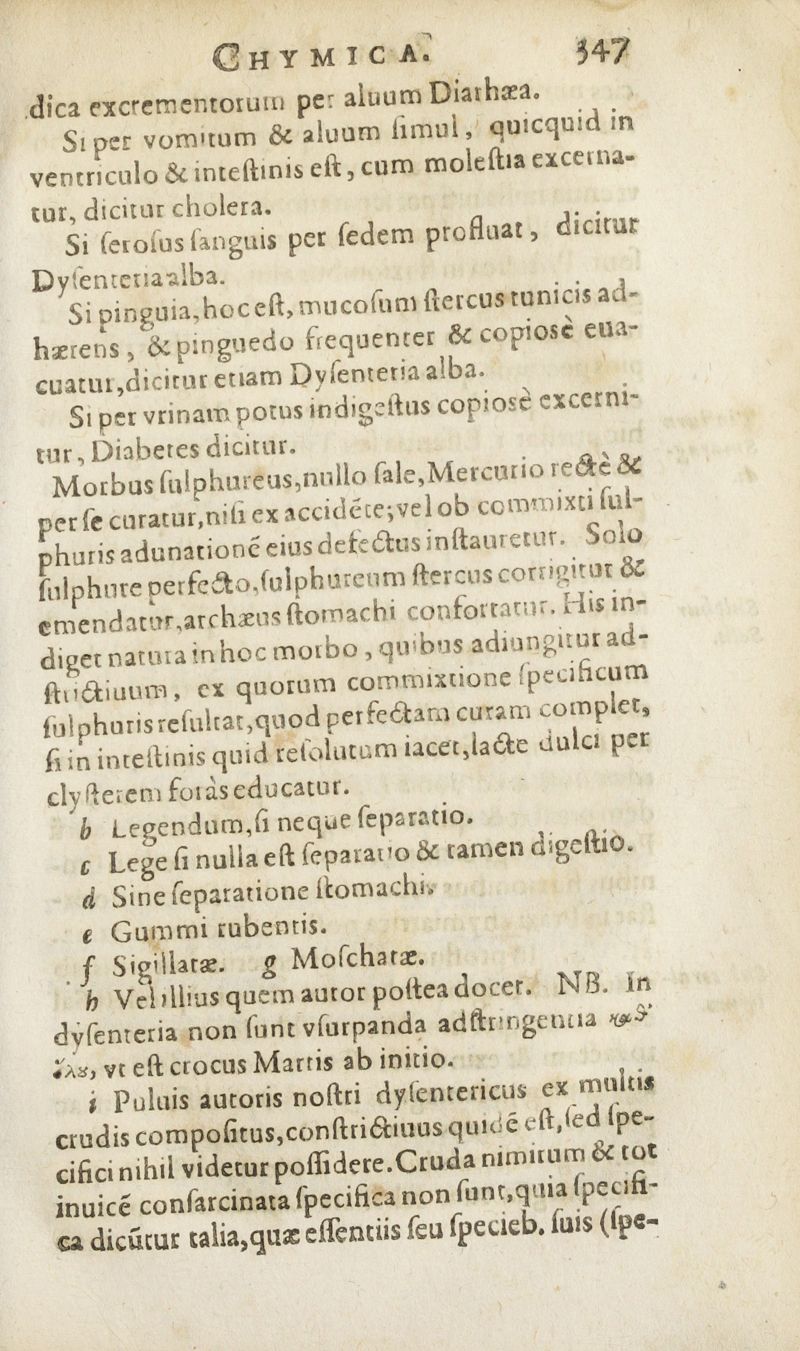 CHYMICA. 347
dica excrementorum per aluum Diarhæa.
Si per vomitum & aluum ſimul, quicquid in
ventriculo & inteſtinis eſt, cum moleſtia excerna-
tur, dicitur cholera.
Si ſeroſus ſanguis per ſedem profluat, dicitur
Dyſenteria alba.
Si pinguia, hoc eſt, mucoſum ſtercus tunicis ad-
hærens, & pinguedo frequenter & copiosè eua-
cuatur, dicitur etiam Dyſenteria alba.
Si per vrinam potus indigeſtus copiosè excerni-
tur, Diabetes dicitur.
Morbus ſulphureus, nullo ſale, Mercurio rectè &
per ſe curatur, niſi ex accidēte; vel ob commixti ſul-
phuris adunationē eius defectus inſtauretur. Solo
ſulphure perfecto, ſulphureum ſtercus corrigitur &
emendatur, archæus ſtomachi confortatur. His in-
diget natura in hoc morbo, quibus adiungitur ad-
ſtrictiuum, ex quorum commixtione ſpecificum
ſulphuris reſultat, quod perfectam curam complet,
ſi in inteſtinis quid reſolutum iacet, lacte dulci per
clyſterem foràs educatur.
b Legendum, ſi neque ſeparatio.
c Lege ſi nulla eſt ſeparatio & tamen digeſtio.
d Sine ſeparatione ſtomachi.
e Gummi rubentis.
f Sigillatæ. g Moſchatæ.
h Vel illius quem autor poſtea docet. NB. In
dyſenteria non ſunt vſurpanda adſtringentia
vt eſt crocus Martis ab initio.
i Puluis autoris noſtri dyſentericus ex multis
crudis compoſitus, conſtrictiuus quidē eſt, ſed ſpe-
cifici nihil videtur poſſidere. Cruda nimirum & tot
inuicē confarcinata ſpecifica non ſunt, quia ſpecifi-
ca dicūtur talia, quæ eſſentiis ſeu ſpecieb. ſuis (ſpe-